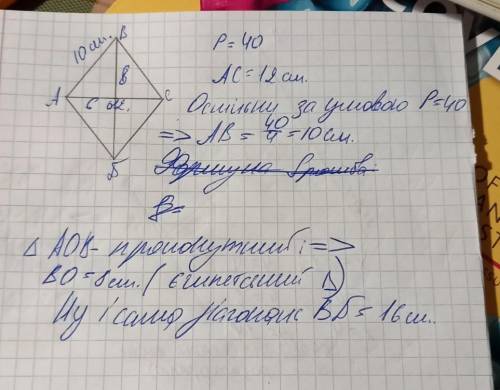 10 см.
В
8
А
6 см.
С
Б
P = 40
AC = 12 см.
Оскільки за умовою P = 40
=> AB = 40/4 = 10 см.
Формула S ромба
S=
Δ AOB - прямокутний і =>
BO = 8 см. (єгипетський Δ)
Ну і сама діагональ ВБ = 16 см.
OF